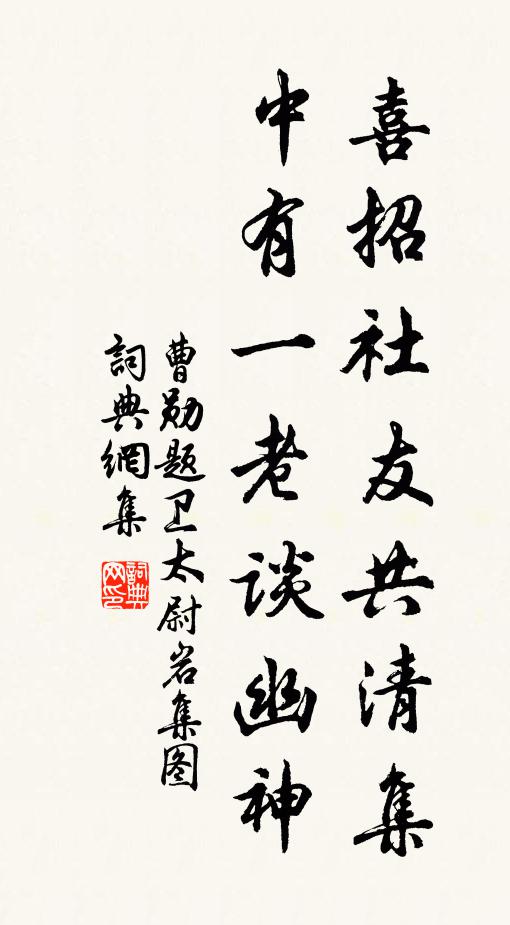 喜招社友共清集
中有一老談幽神
曹勋题卫太尉岩集图
詞典網集
詞典网印